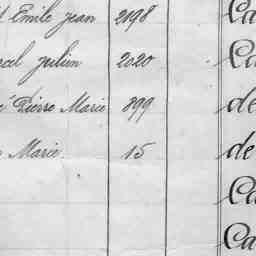 Emile Jean 2198 Ca
Julien 2020 Ca
Pierre Marie 899 de
Marie. 15 de
Ca
Ca